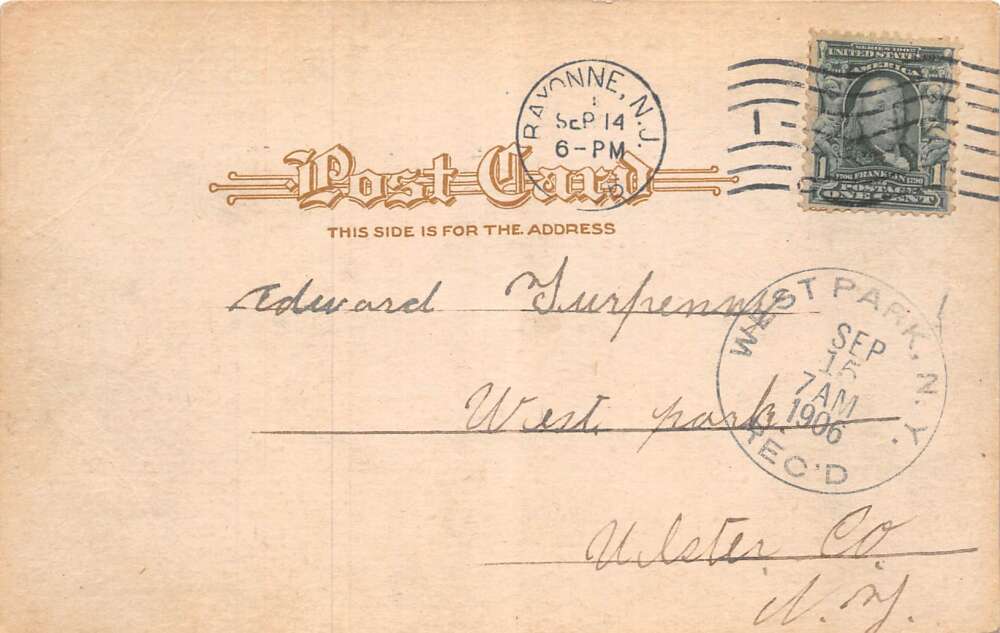 SERIES 1902
UNITED STATES OF
AMERICA
1706 FRANKLIN 1790
1 POSTAGE 1
ONE CENT
BAYONNE, N.J.
SEP 14
6-PM
Post Card
THIS SIDE IS FOR THE ADDRESS
Edward Turpenny
WEST PARK, N.Y.
SEP
15
7AM
1906
REC'D
West park.
Ulster Co
N.Y.